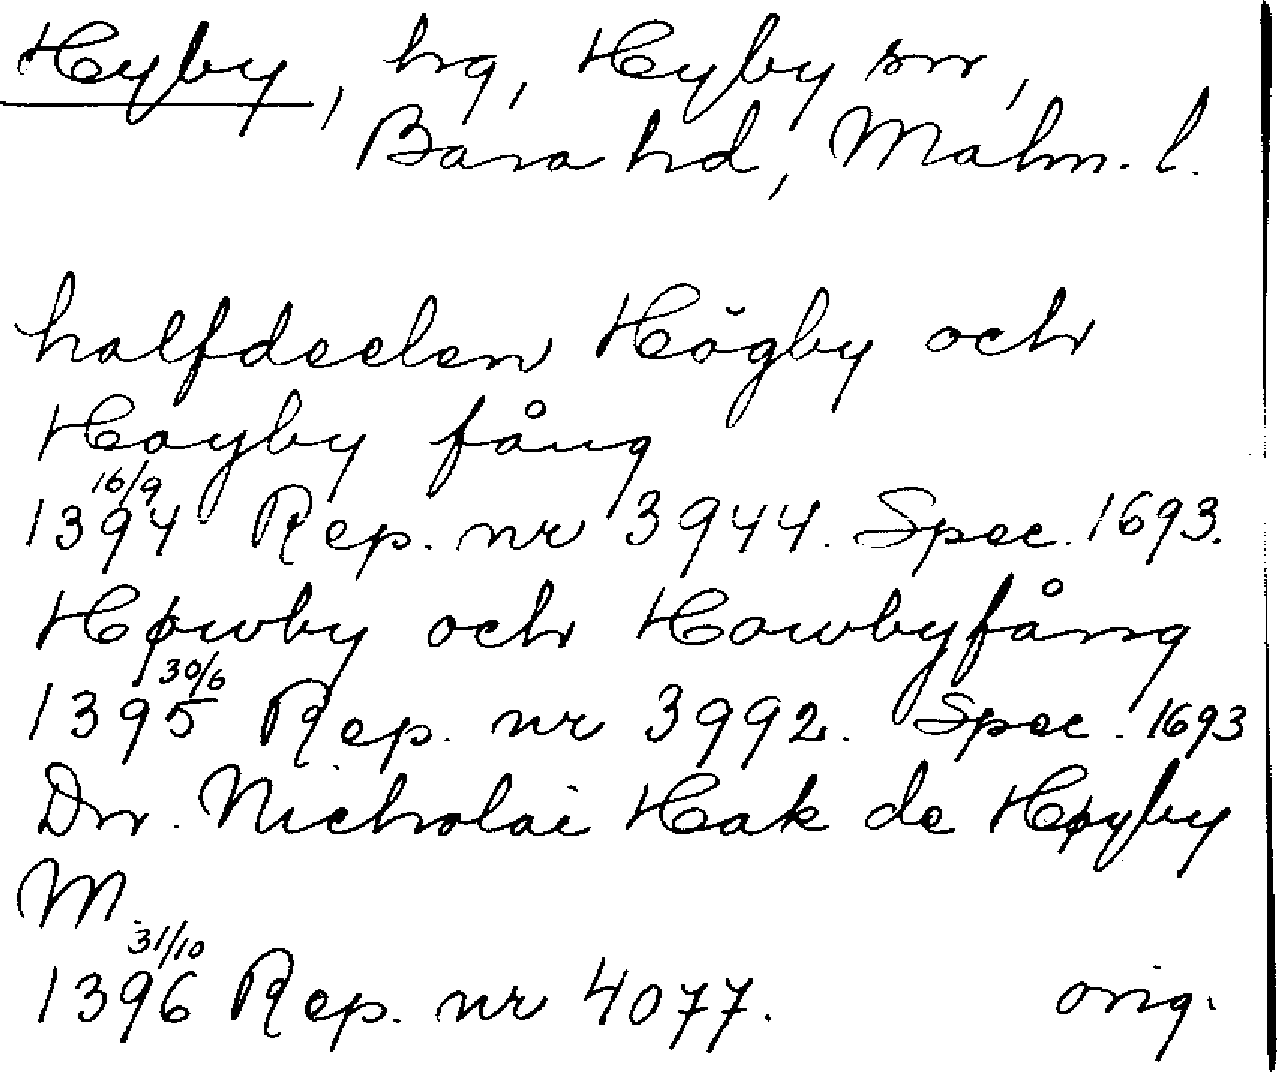 Hyby, hg, Hyby sn,
Bara hd, Malm. l.
halfdeelen Högby och
Hayby fång
1394 16/9 Rep. nr 3944. Spec. 1693.
Høwby och Howbyfång
1395 30/6 Rep. nr 3992. Spec. 1693
Dn. Nicholai Hak de Høyby
M.
1396 31/10 Rep. nr 4077. orig.